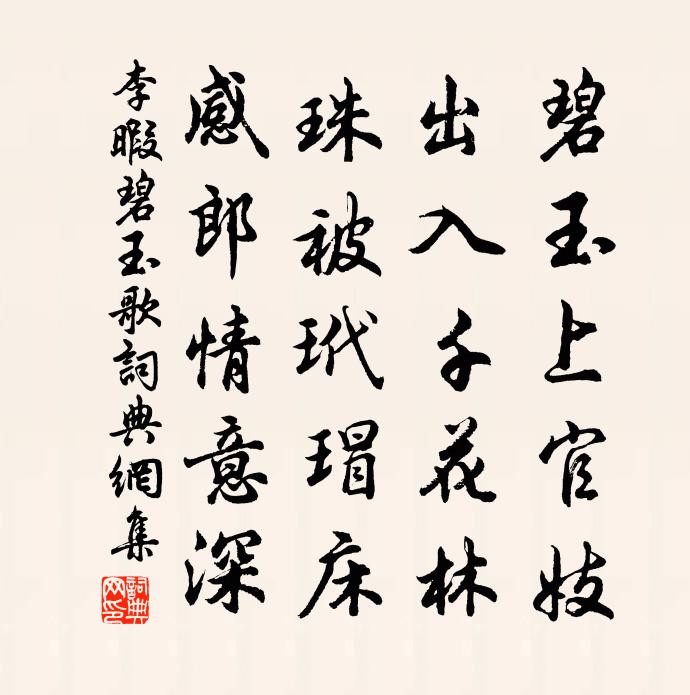 碧玉上官妓
出入千花林
珠被玳瑁床
感郎情意深
李暇碧玉歌詞典網集
詞典網印